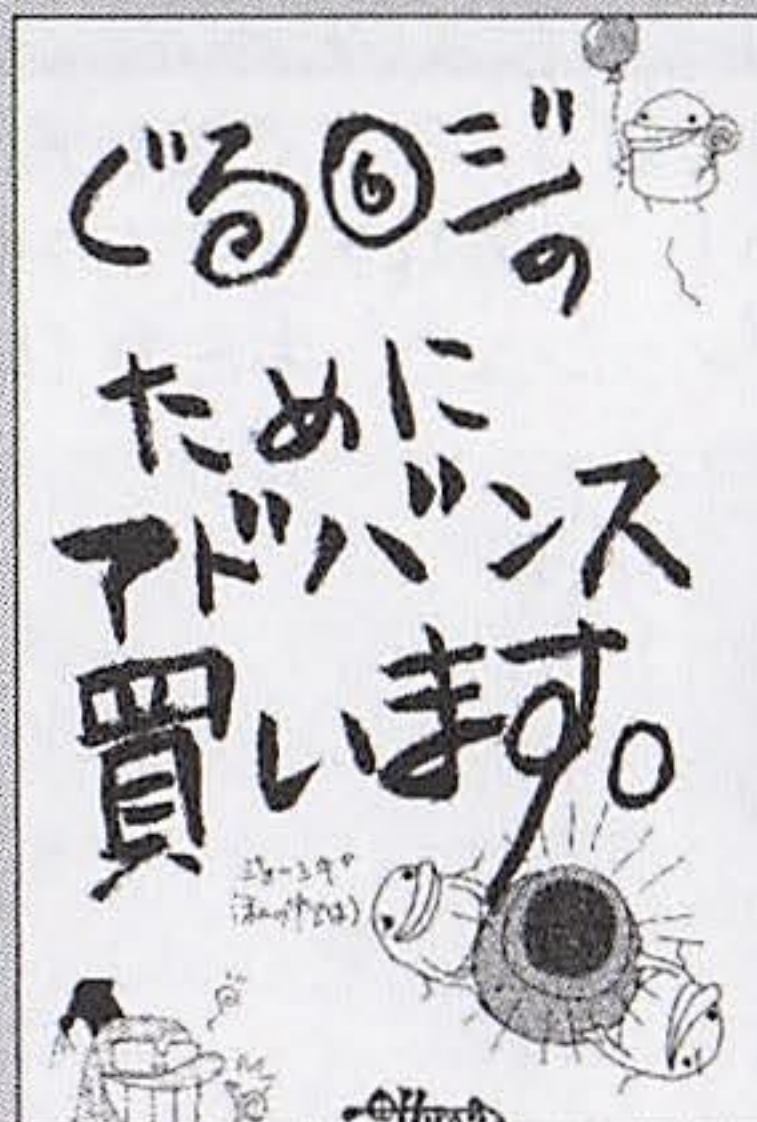 ぐるロジの
ために
アドバンス
買います。